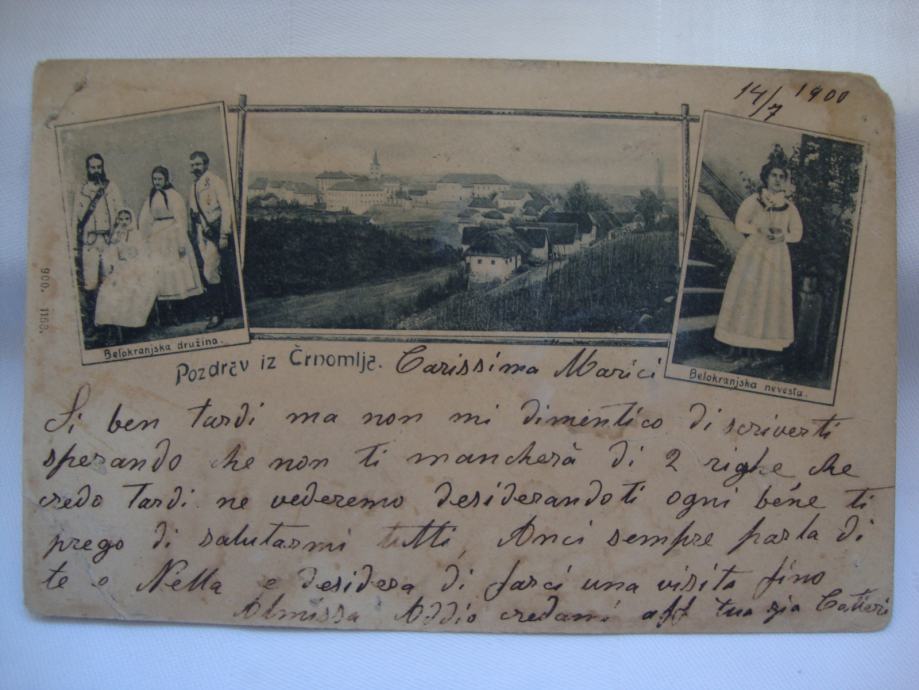 14/7 1900
900. 1168.
Belokranjska družina.
Pozdrav iz Črnomlja.
Belokranjska nevesta.
Carissima Marici
Si ben tardi ma non mi dimentico di scriverti
sperando che non ti mancherà di 2 righe che
credo tardi ne vederemo desiderandoti ogni bene ti
prego di salutarmi tutti, Anci sempre parla di
te o Nella e desidera di farci una visita fino
Almissa Addio credami aff tua zia